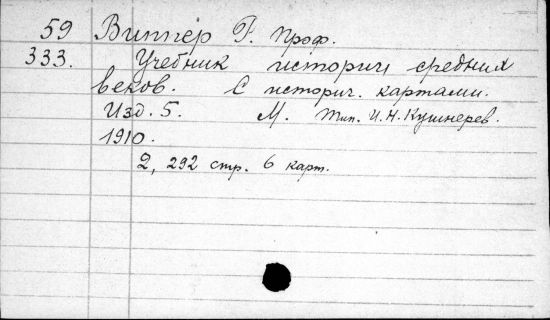 59 Виппер Р. Проф.
333. Учебник истории средних
веков. С историч. картами.
Изд. 5. М. Тип. И.Н.Кушнерев.
1910.
2, 292 стр. 6 карт.